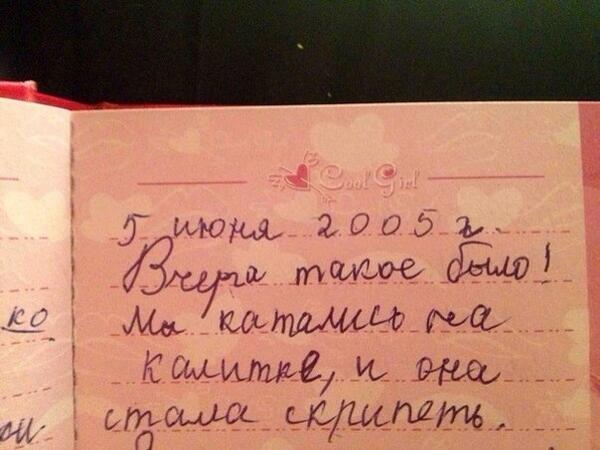 Cool Girl
5 июня 2005 г.
Вчера такое было!
Мы катались на
ко
калитке, и она
стала скрипеть.